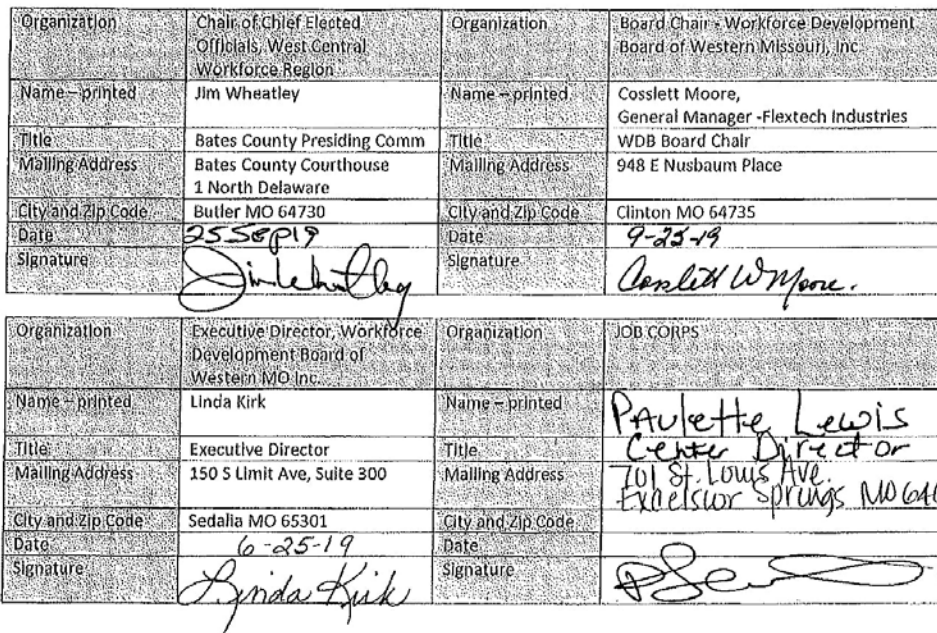 Organization Chair of Chief Elected Organization Board Chair - Workforce Development
Officials, West Central Board of Western Missouri, Inc
Workforce Region
Name – printed Jim Wheatley Name – printed Cosslett Moore,
General Manager -Flextech Industries
Title Bates County Presiding Comm Title WDB Board Chair
Mailing Address Bates County Courthouse Mailing Address 948 E Nusbaum Place
1 North Delaware
City and Zip Code Butler MO 64730 City and Zip Code Clinton MO 64735
Date 25SEP19 Date 9-25-19
Signature Signature Cosslett W Moore.
Organization Executive Director, Workforce Organization JOB CORPS
Development Board of
Western MO Inc.
Name – printed Linda Kirk Name – printed PAulette Lewis
Title Executive Director Title Center Director
Mailing Address 150 S Limit Ave, Suite 300 Mailing Address 701 St. Louis Ave.
Excelsior Springs MO
City and Zip Code Sedalia MO 65301 City and Zip Code
Date 6-25-19 Date
Signature Linda Kirk Signature